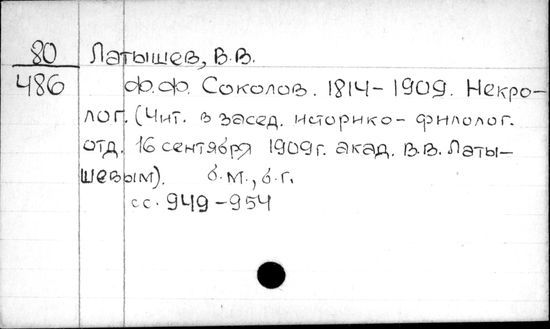 80 Латышев, В.В.
486 Ф.Ф. Соколов. 1814-1909. Некро-
лог. (Чит. в засед. историко-филолог.
отд. 16 сентября 1909 г. акад. В.В. Латы-
шевым). б.м., б.г.
сс. 949-954